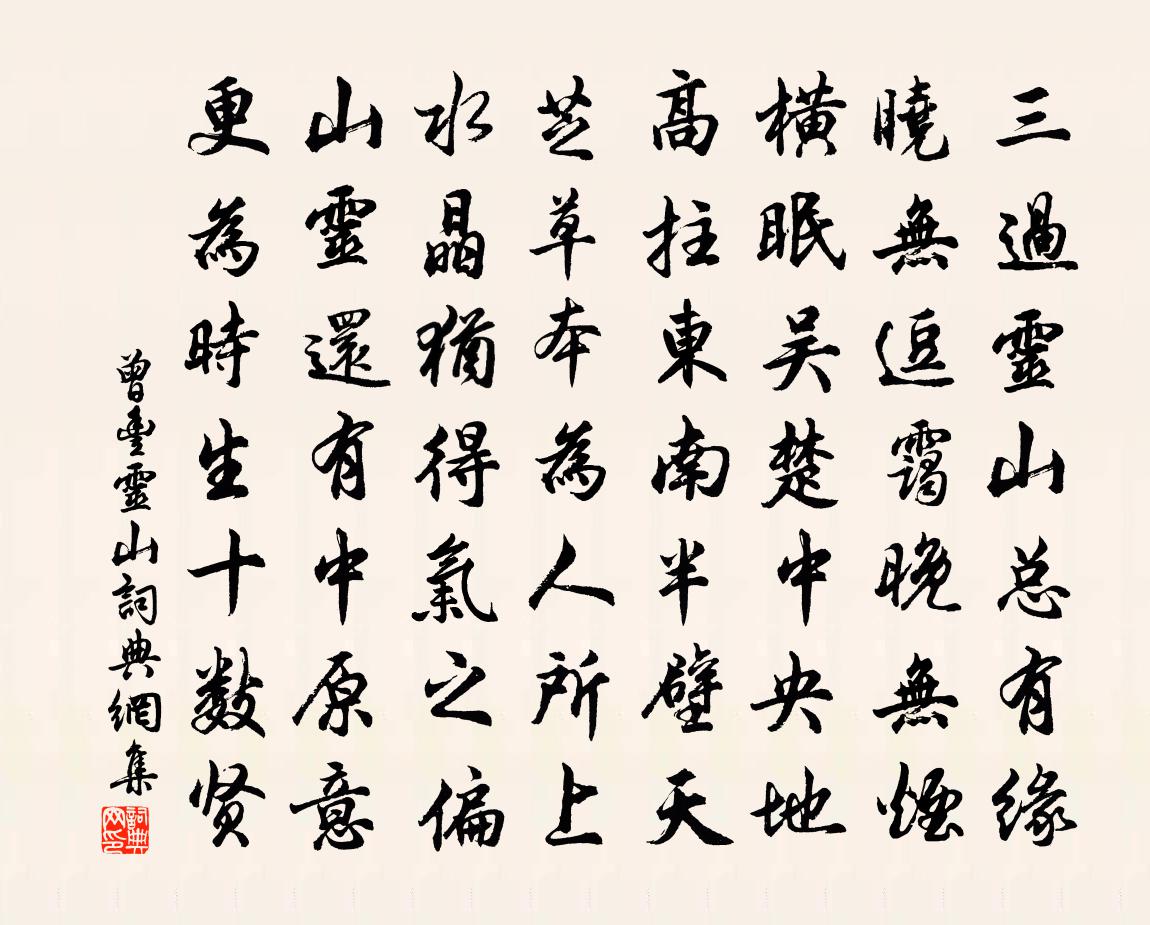 三過靈山总有缘
曉無逗靄晚無煙
橫眠吴楚中央地
高拄東南半壁天
芝草本為人所上
水晶猶得氣之偏
山靈還有中原意
更為時生十数贤
曾豐靈山詞典網集
詞典网印